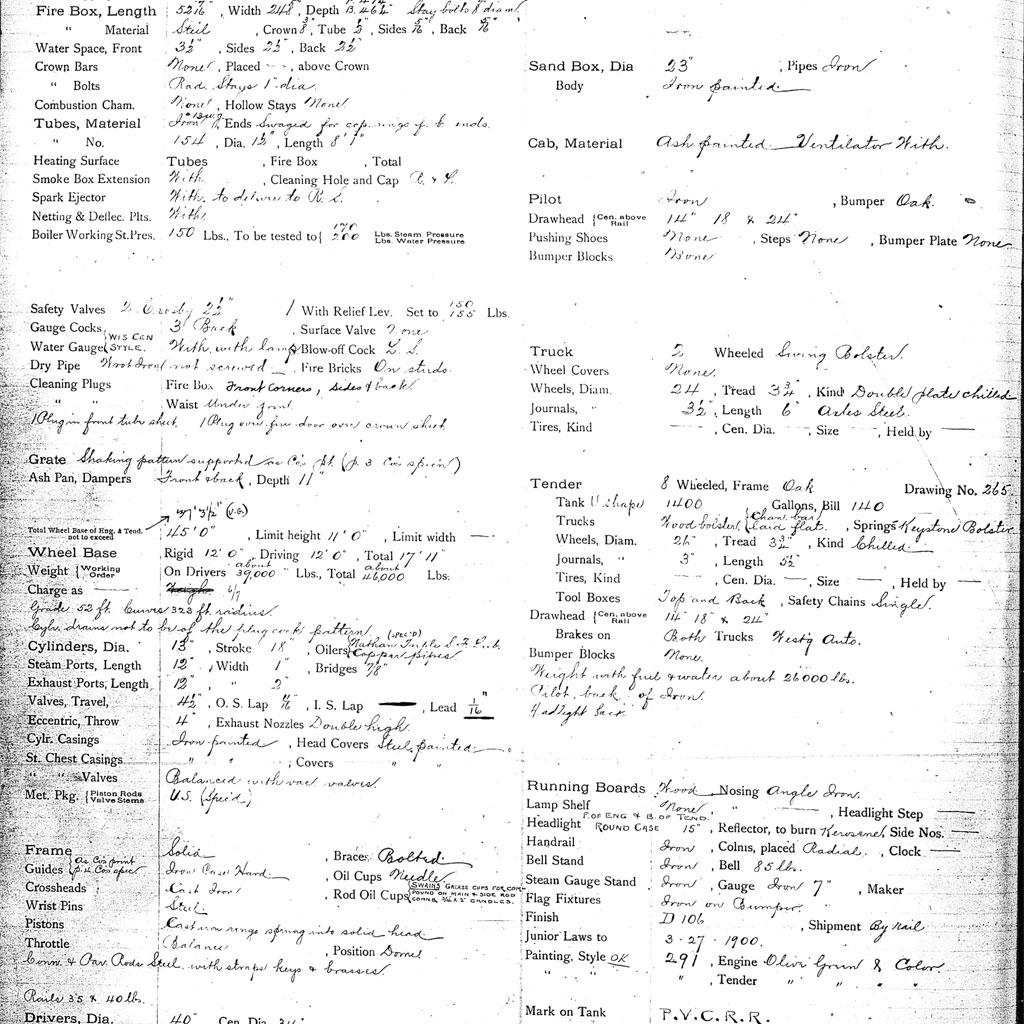 Fire Box, Length 52 7/16" , Width 24 5/8" , Depth Stay bolts 7/8" diam.
" Material Steel , Crown 3/8", Tube 1/2", Sides 5/16", Back 5/16"
Water Space, Front 3 1/2" , Sides 2 1/2" , Back 2 1/2"
Crown Bars None , Placed — , above Crown
" Bolts Rad. Stays 1" dia.
Combustion Cham. None , Hollow Stays None
Tubes, Material Iron #13 W.G. , Ends Swaged for cop. rings f. b. ends.
" No. 154 , Dia. 1 1/2" , Length 8' 1"
Heating Surface Tubes , Fire Box , Total
Smoke Box Extension With , Cleaning Hole and Cap R. & L.
Spark Ejector With. to deliver to R. S.
Netting & Deflec. Plts. With
Boiler Working St. Pres. 150 Lbs., To be tested to { 170 Lbs. Steam Pressure
200 Lbs. Water Pressure
Safety Valves 2. Crosby 2 1/2" / With Relief Lev. Set to 150 155 Lbs.
Gauge Cocks 3 Back , Surface Valve None
Water Gauge { WIS CEN STYLE. With, with lamp Blow-off Cock L. S.
Dry Pipe Wrot Iron not screwed — , Fire Bricks On studs.
Cleaning Plugs Fire Box Front Corners, sides & back
" " Waist Under joint
1 Plug in front tube sheet. 1 Plug over fire door over crown sheet
Grate Shaking pattern supported as Co's pt. (p. 3 Co's specn)
Ash Pan, Dampers Front & back , Depth 11"
47' 3 1/2" (V.G.)
Total Wheel Base of Eng. & Tend. not to exceed 45' 0" , Limit height 11' 0" , Limit width —
Wheel Base Rigid 12' 0" , Driving 12' 0" , Total 17' 11"
Weight { Working Order On Drivers about 39,000 " Lbs., Total about 46,000 Lbs.
Charge as 6/7
Grade 52 ft. Curves 323 ft radius.
Cylr. drains not to be of the plug cock pattern
Cylinders, Dia. 13" , Stroke 18" , Oilers { Nathan Triple S. F. Lub. (SPEC'D) Copper pipes
Steam Ports, Length 12" , Width 1" , Bridges 7/8"
Exhaust Ports, Length 12" , " 2"
Valves, Travel, 4 1/2" , O. S. Lap , I. S. Lap — , Lead 1/16"
Eccentric, Throw 4" , Exhaust Nozzles Double high
Cylr. Casings Iron painted , Head Covers Steel, painted —
St. Chest Casings " " , Covers " "
" " Valves Balanced with vac valves.
Met. Pkg. { Piston Rods Valve Stems U.S. (Specd.)
Frame Solid , Braces Bolted.
Guides { as Co's print p. 4 Co's spec Iron Case Hard. , Oil Cups Needle
Crossheads Cast Iron , Rod Oil Cups { SWAIN'S GREASE CUPS FOR COMPOUND ON MAIN & SIDE ROD CONNS, CANDLES.
Wrist Pins Steel
Pistons Cast iron rings sprung into solid head.
Throttle Balance , Position Dome
Conn. & Par. Rods Steel, with straps keys & brasses
Rails 35 & 40 lbs.
Drivers, Dia. 40" Cen. Dia. 34"
Sand Box, Dia 23" , Pipes Iron
Body Iron painted.
Cab, Material Ash painted. Ventilator With.
Pilot Iron , Bumper Oak.
Drawhead { Cen. above Rail 14" 18 & 24"
Pushing Shoes None , Steps None , Bumper Plate None
Bumper Blocks None
Truck 2 Wheeled Swing Bolster.
Wheel Covers None.
Wheels, Diam. 24 , Tread 3 3/4" , Kind Double plate chilled
Journals, " 3 1/2" , Length 6" Axles Steel.
Tires, Kind — , Cen. Dia. — , Size — , Held by —
Tender 8 Wheeled, Frame Oak Drawing No. 265
Tank U shape 1400 Gallons, Bill 140
Trucks Wood bolster, { Chan. iron laid flat. , Springs Keystone Bolster
Wheels, Diam. 24" , Tread 3 3/4" , Kind Chilled.
Journals, " 3" , Length 5 1/2"
Tires, Kind — , Cen. Dia. — , Size — , Held by —
Tool Boxes Top and Back , Safety Chains Single.
Drawhead { Cen. above Rail 14" 18" & 24"
Brakes on Both Trucks Westg Auto.
Bumper Blocks None.
Weight with fuel & water about 26000 lbs.
Pilot, back of Iron.
Headlight
Running Boards Wood , Nosing Angle Iron.
Lamp Shelf None " — , Headlight Step —
Headlight F. OF ENG & B. OF TEND. ROUND CASE 15" , Reflector, to burn Kerosene, Side Nos. —
Handrail Iron , Colms, placed Radial. , Clock —
Bell Stand Iron , Bell 85 lbs.
Steam Gauge Stand Iron , Gauge Iron 7" , Maker
Flag Fixtures Iron on Bumper.
Finish D 106 , Shipment By Rail
Junior Laws to 3-27-1900.
Painting, Style OK 291 , Engine Olive Green & Color.
" " " , Tender " " " "
Mark on Tank P.V.C.R.R.